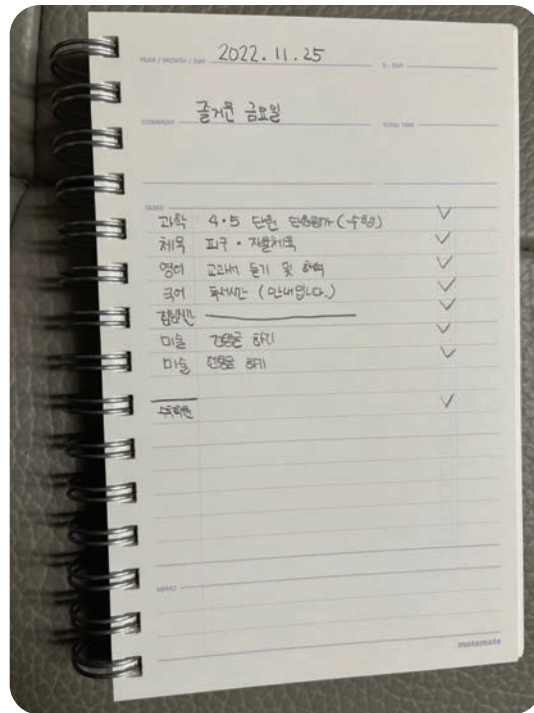 YEAR / MONTH / DAY 2022. 11. 25 D - DAY
COMMENT 즐거운 금요일 TOTAL TIME
TASKS
과학 4·5 단원 단원평가 (수행)
체육 피구 · 자율체육
영어 교과서 듣기 및 해석
국어 독서시간 (안내입니다.)
점심시간
미술 하기
미술 하기
수학학원
MEMO
matemate